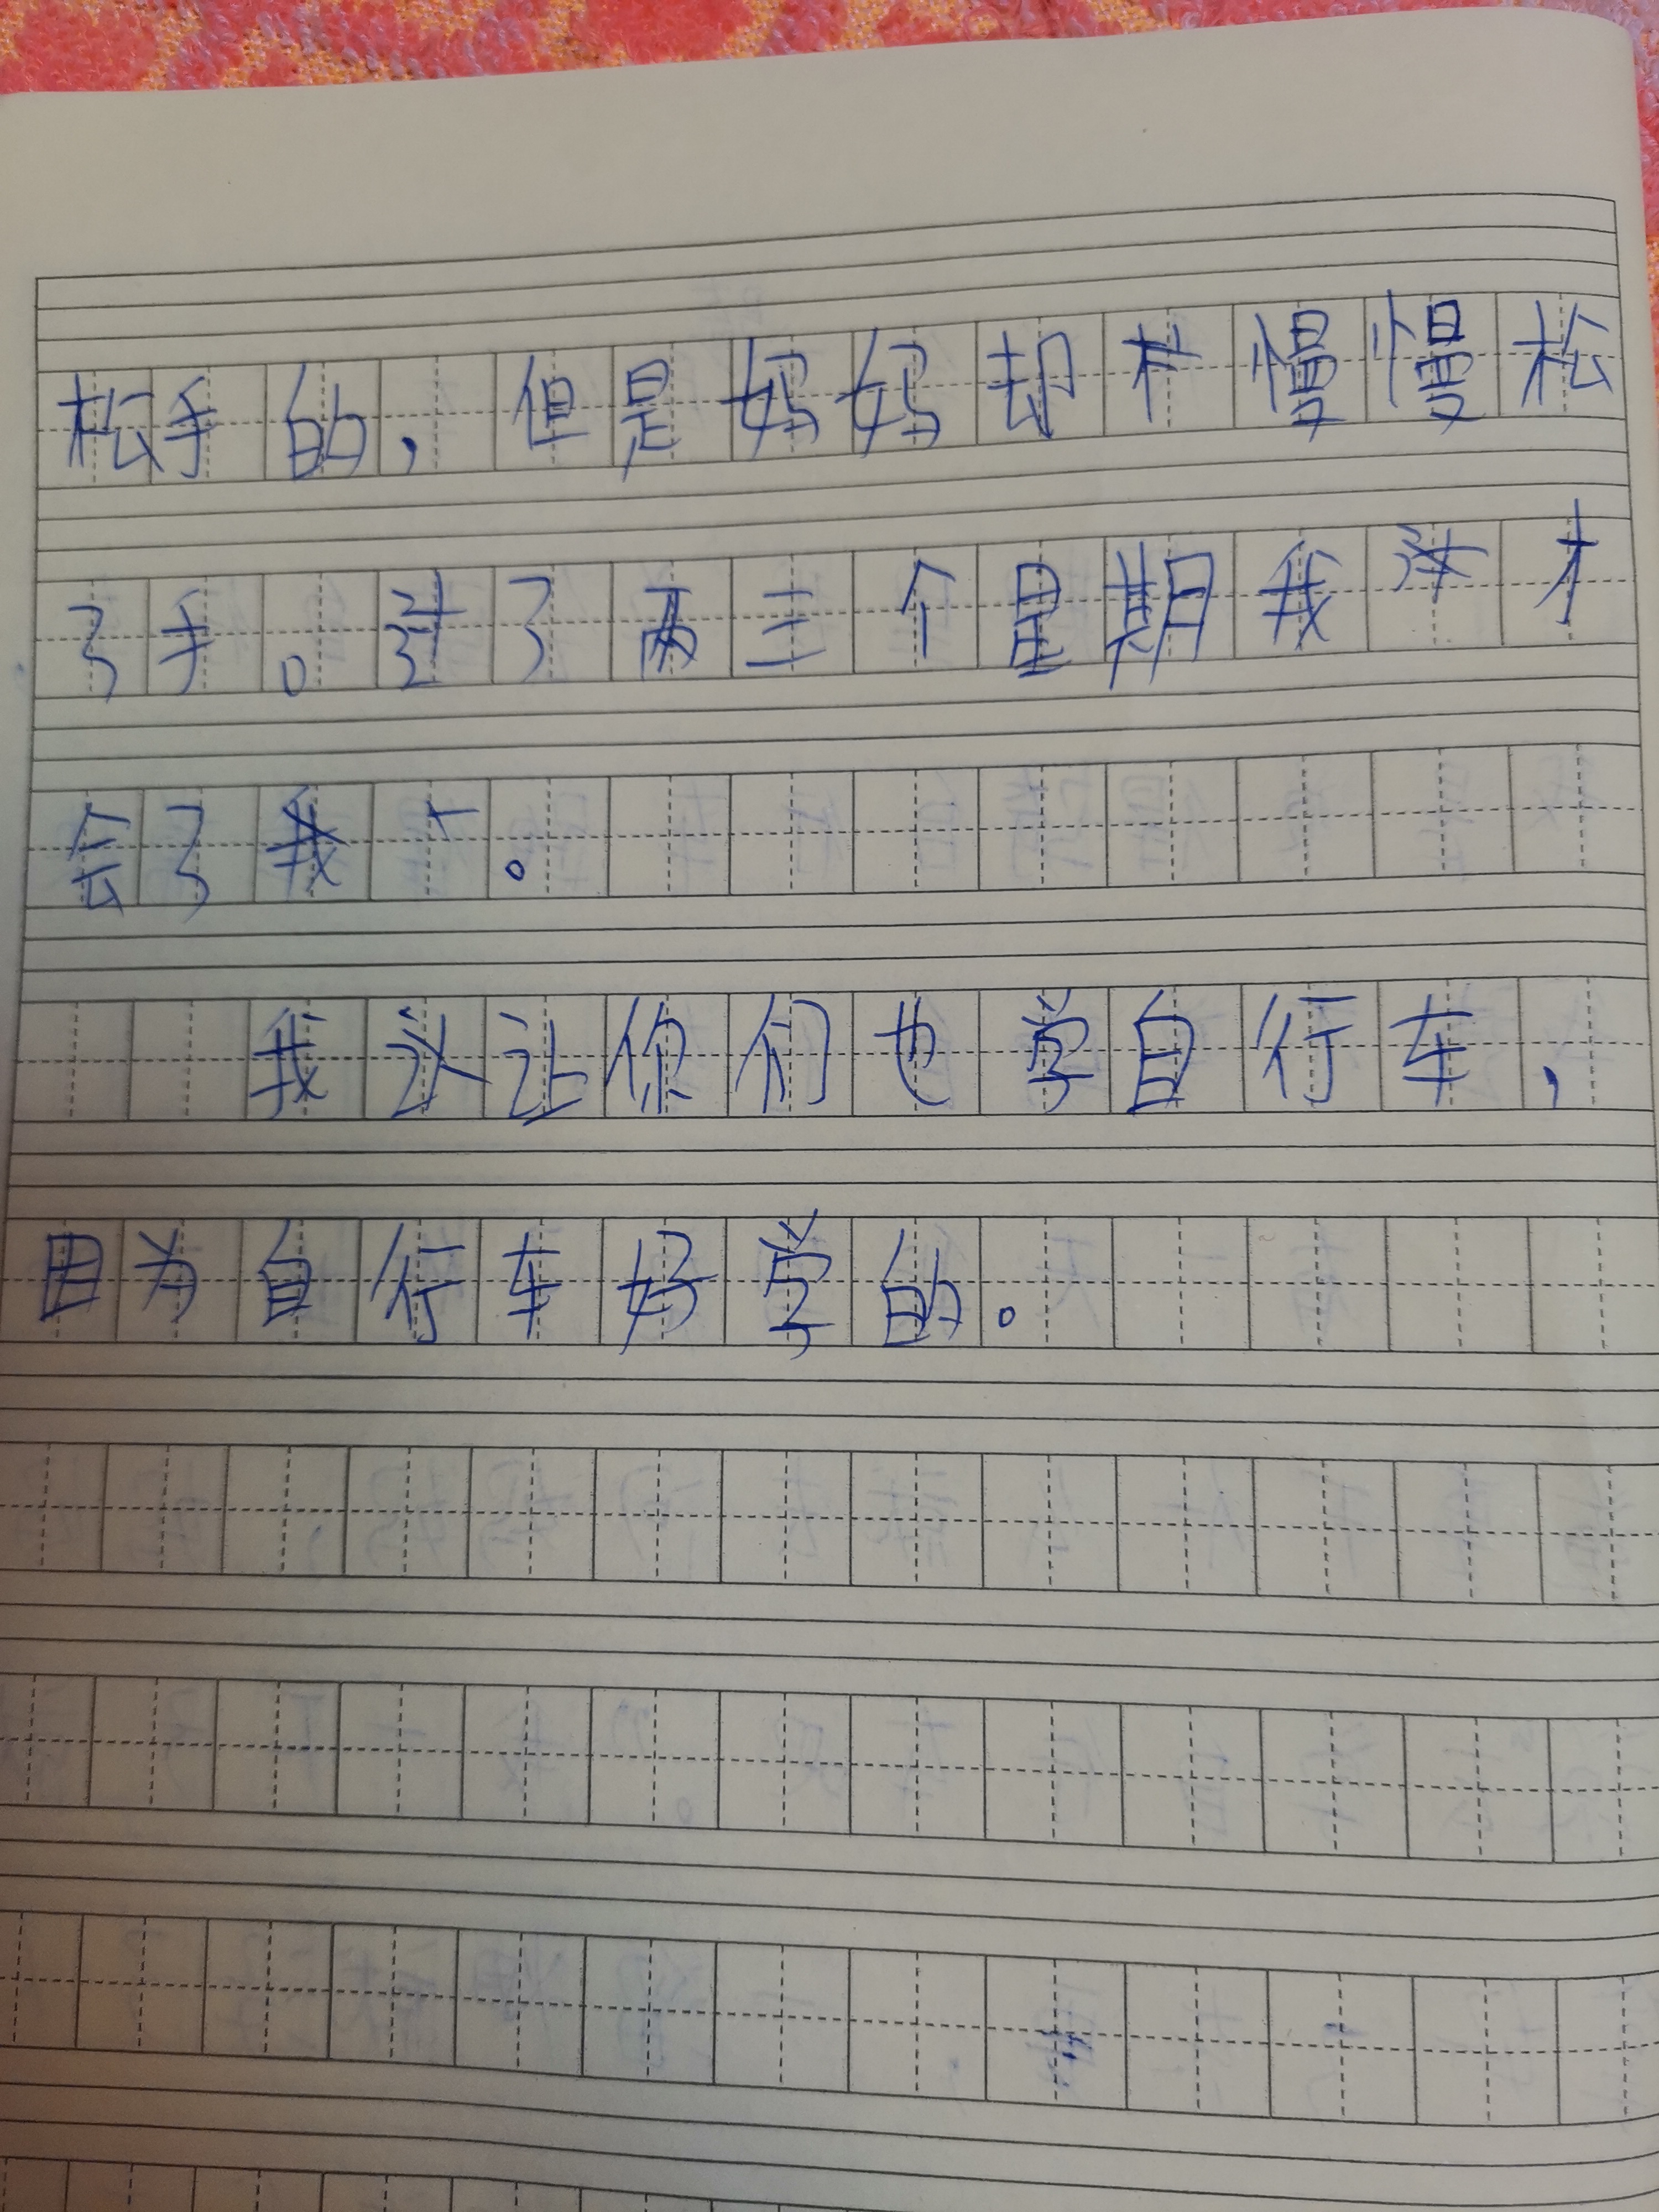 松手的，但是妈妈却才慢慢松
了手。过了两三个星期我才
会了我。
我议让你们也学自行车，
因为自行车好学的。